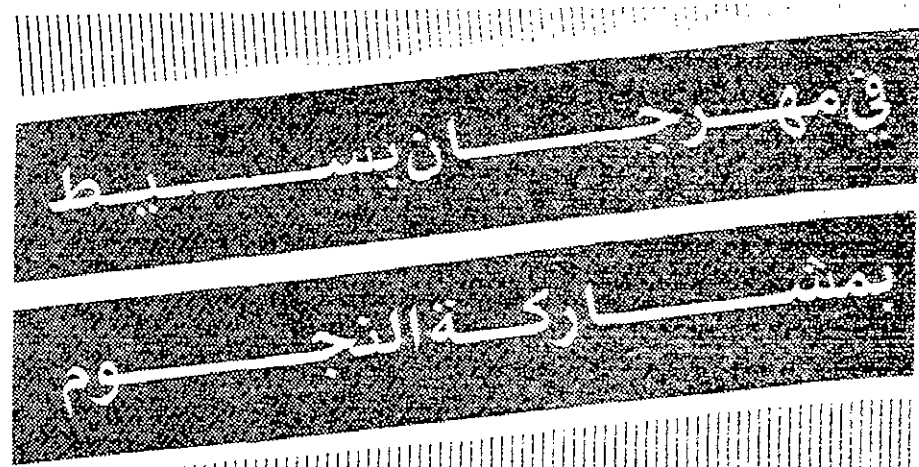 في مهرجان بسيط
بمشاركة النجوم